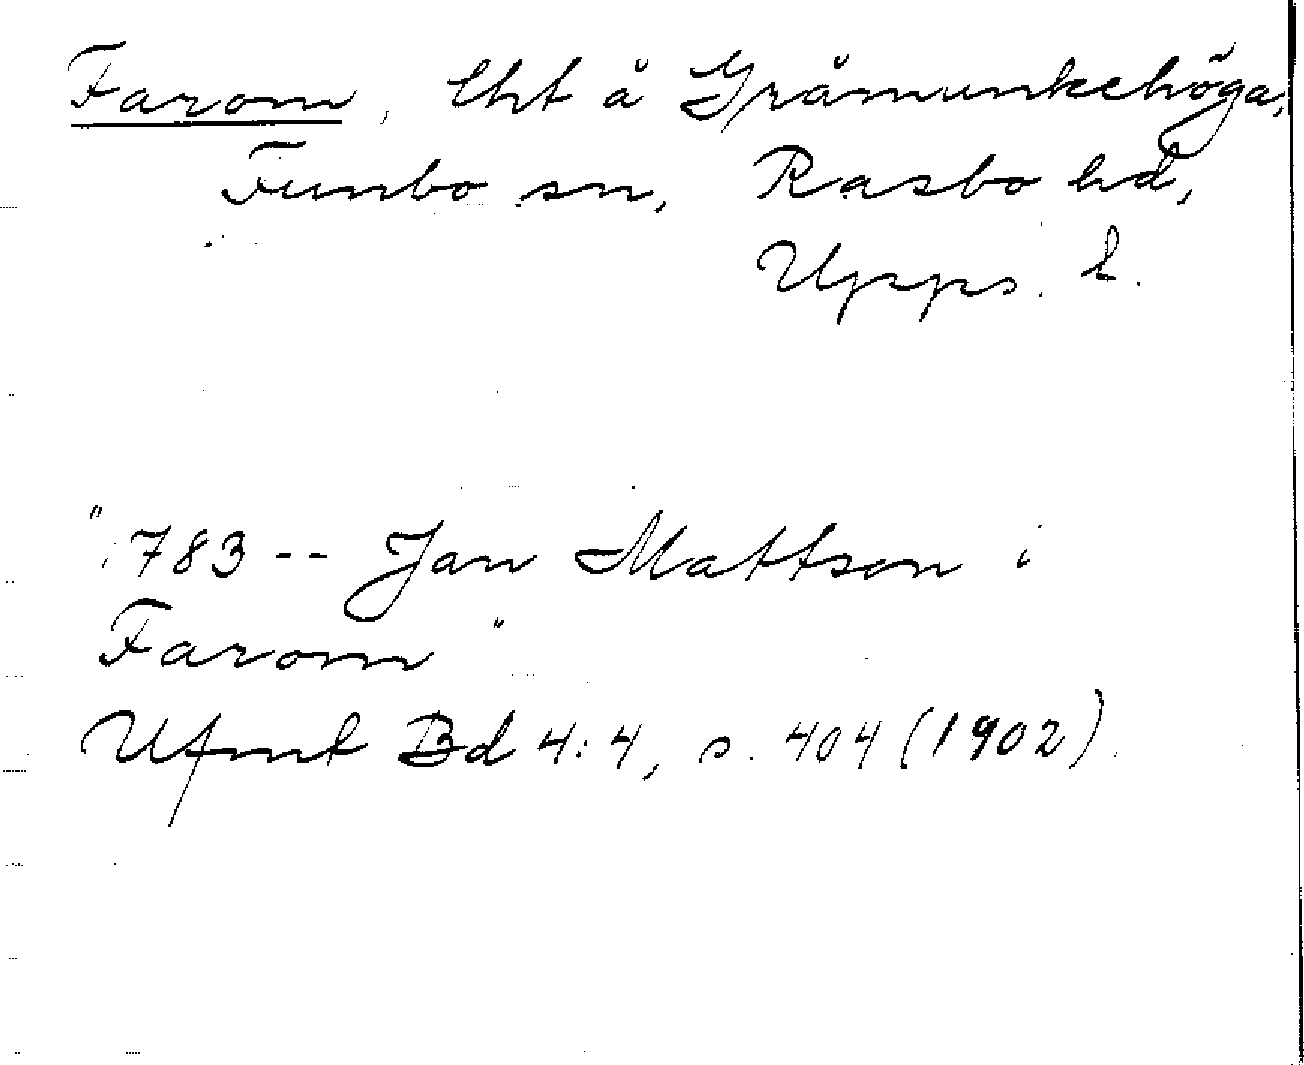 Farom, lht å Gråmunkehöga,
Funbo sn, Rasbo hd,
Upps. l.
"1783 -- Jan Mattson i
Farom"
Ufmt Bd 4:4, s. 404 (1902).